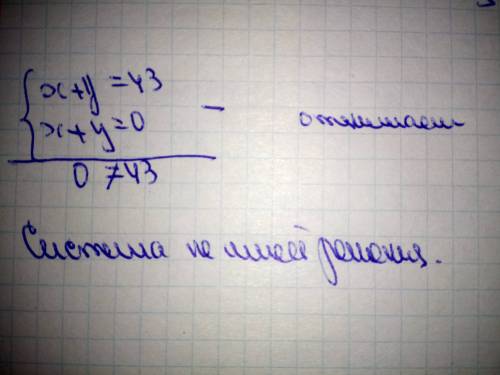 x+y=43
x+y=0 − отнимаем
0 ≠ 43
Система не имеет решения.